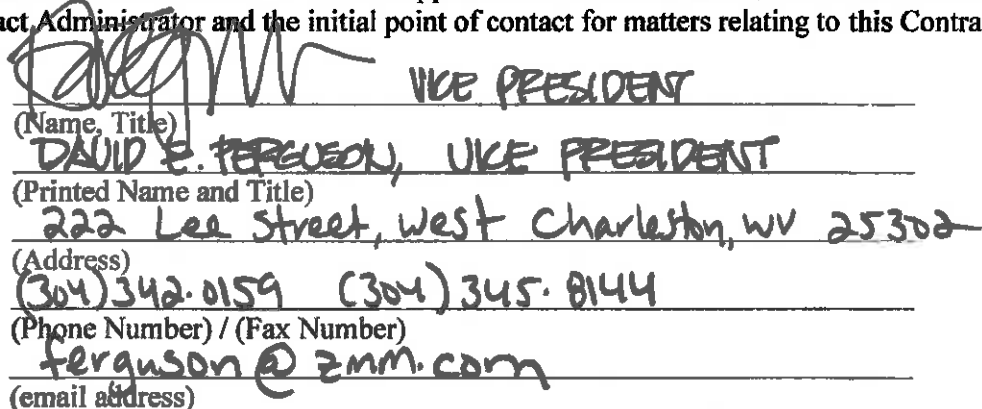 act Administrator and the initial point of contact for matters relating to this Contra
VICE PRESIDENT
(Name, Title)
DAVID E. FERGUSON, VICE PRESIDENT
(Printed Name and Title)
222 Lee Street, West Charleston, WV 25302
(Address)
(304) 342.0159 (304) 345.8144
(Phone Number) / (Fax Number)
ferguson@zmm.com
(email address)